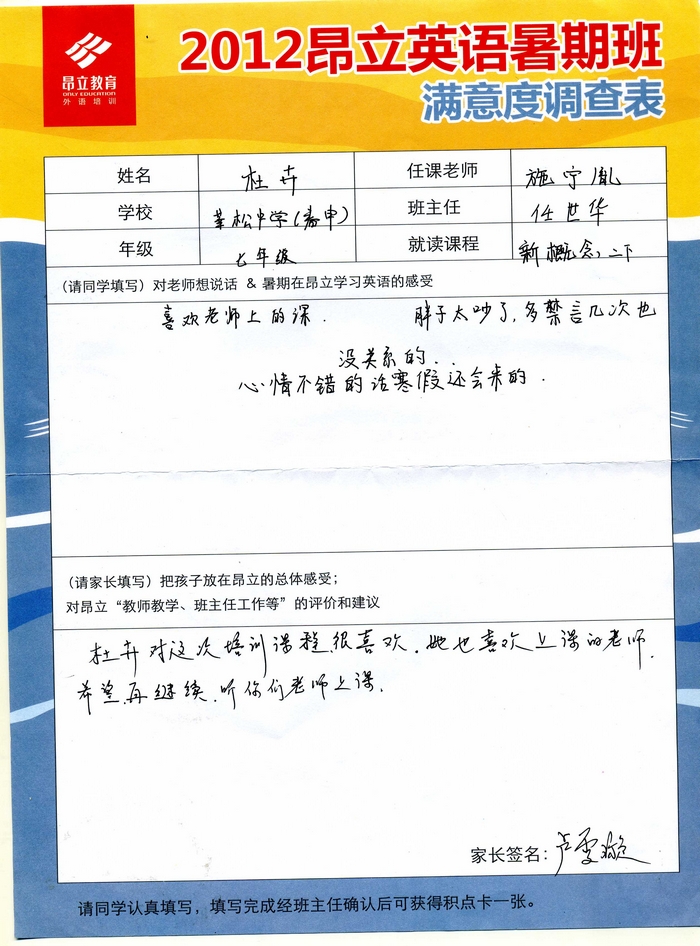 昂立教育
ONLY EDUCATION
外语培训
2012昂立英语暑期班
满意度调查表
姓名 杜卉 任课老师 施宁胤
学校 莘松中学(春申) 班主任 任世华
年级 七年级 就读课程 新概念,二下
(请同学填写)对老师想说话 & 暑期在昂立学习英语的感受
喜欢老师上的课. 胖子太吵了,多禁言几次也
没关系的..
心情不错的话寒假还会来的.
(请家长填写)把孩子放在昂立的总体感受;
对昂立“教师教学、班主任工作等”的评价和建议
杜卉对这次培训课程很喜欢,她也喜欢上课的老师.
希望再继续听你们老师上课.
家长签名:卢雯
请同学认真填写,填写完成经班主任确认后可获得积点卡一张。